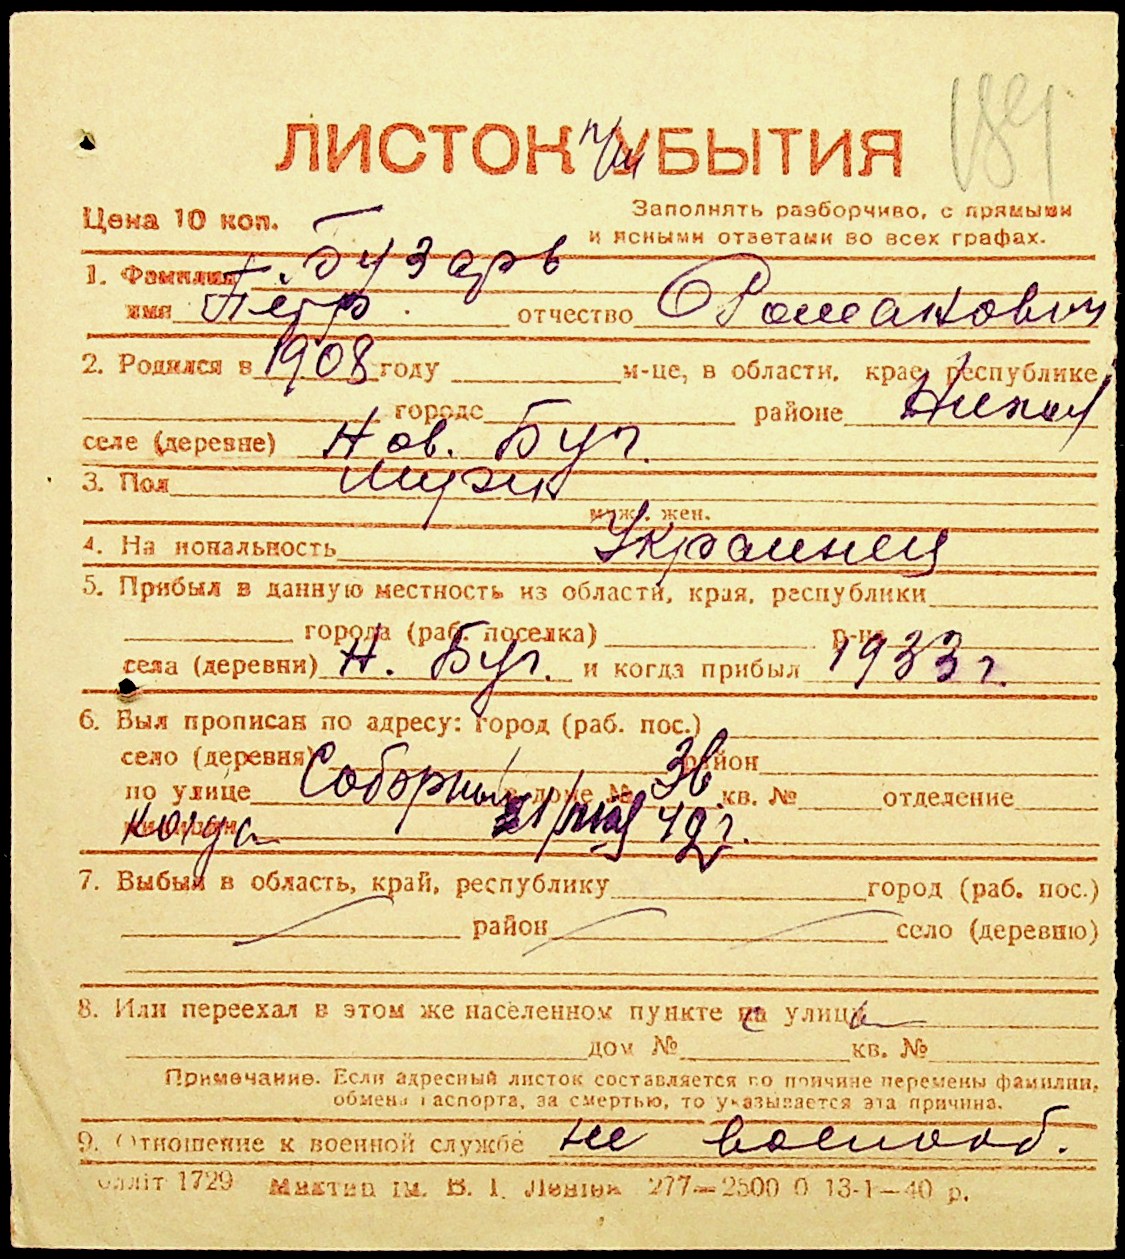 189
ЛИСТОК УБЫТИЯ
Цена 10 коп.
Заполнять разборчиво, с прямыми
и ясными ответами во всех графах.
1. Фамилия Бузарв
имя Пётр отчество Романович
2. Родился в 1908 году м-це, в области, крае, республике
городе районе Никол
селе (деревне) Нов. Буг.
3. Пол мужск
муж., жен.
4. На иональность Украинец
5. Прибыл в данную местность из области, края, республики
города (раб. поселка) р-на
села (деревни) Н. Буг. и когда прибыл 1933 г.
6. Был прописан по адресу: город (раб. пос.)
село (деревня) район
по улице Соборный в доме № 36 кв. № отделение
милиции когда 21/ 42 г.
7. Выбыл в область, край, республику город (раб. пос.)
район село (деревню)
8. Или переехал в этом же населенном пункте на улицу
дом № кв. №
Примечание. Если адресный листок составляется по причине перемены фамилии,
обмена паспорта, за смертью, то указывается эта причина.
9. Отношение к военной службе не военнооб.
Олліт 1729 ім. В. І. Леніна 277—2500 0 13-1—40 р.